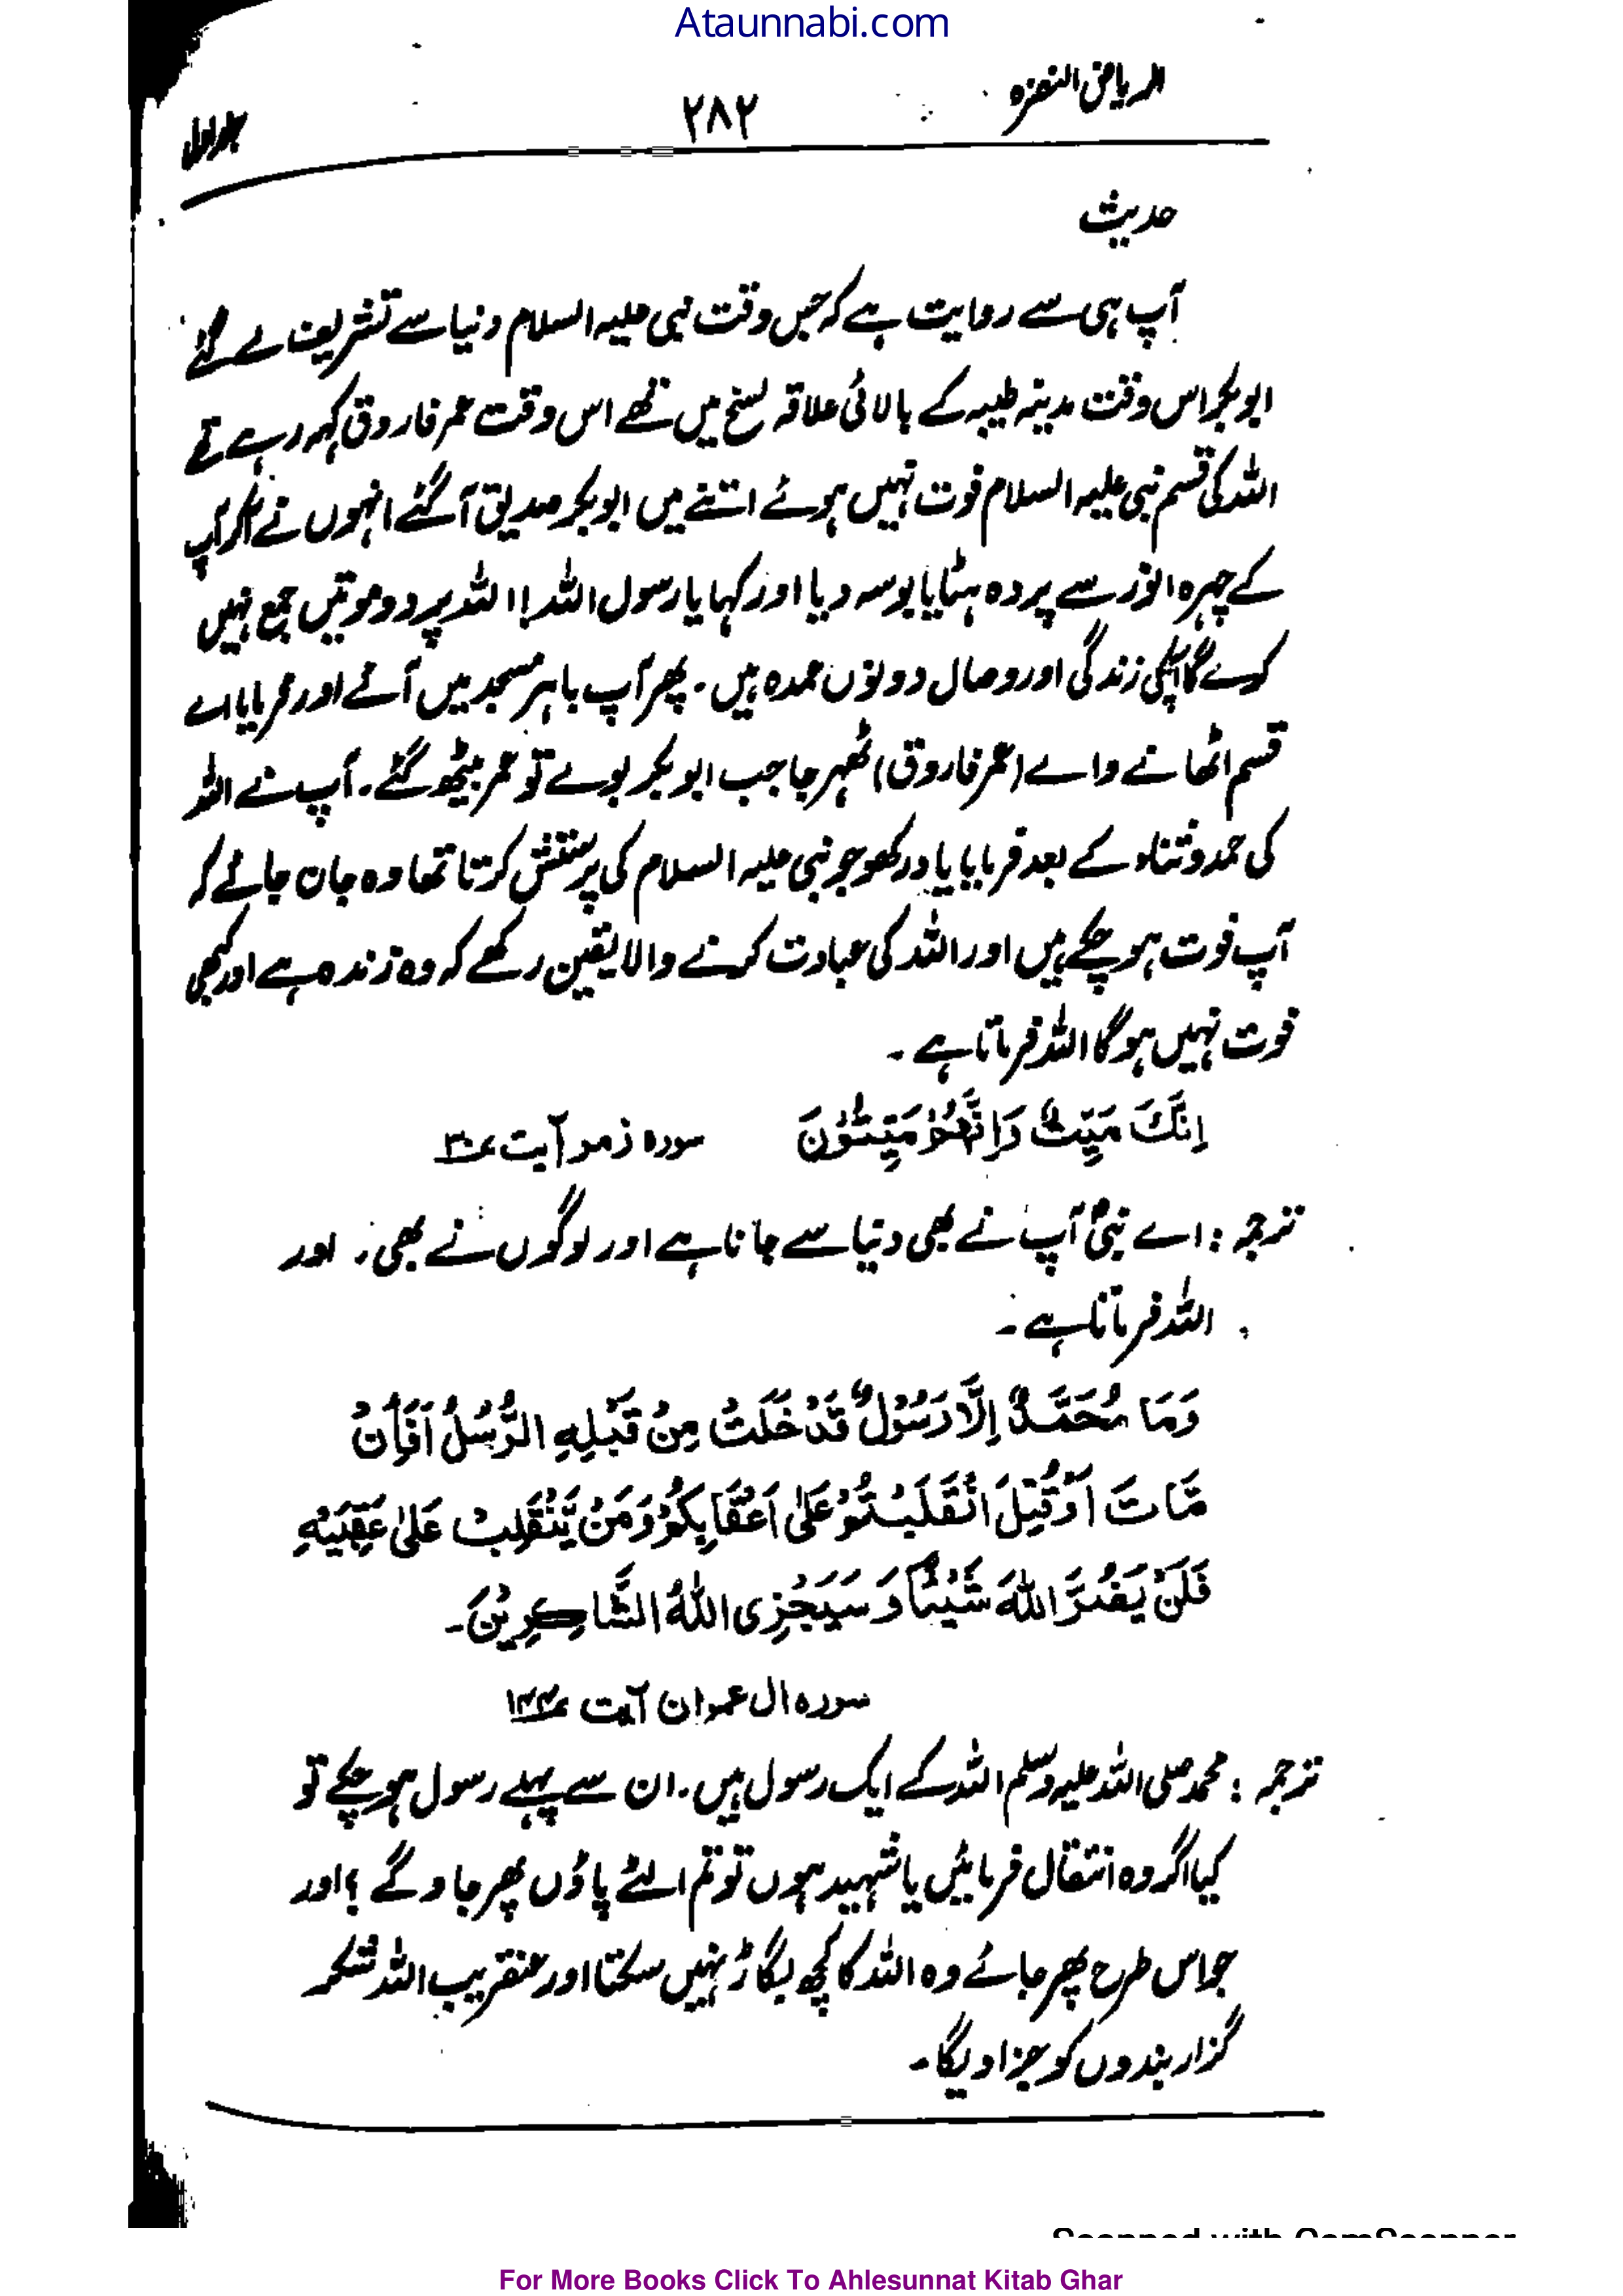 Ataunnabi.com
الریاض النضرہ ۲۸۲ جلد اول
حدیث
آپ ہی سے روایت ہے کہ جس وقت نبی علیہ السلام دنیا سے تشریف لے گئے
ابوبکر اس وقت مدینہ طیبہ کے بالائی علاقہ سنح میں تھے اس وقت عمر فاروق کہہ رہے تے
اللہ کی قسم نبی علیہ السلام فوت نہیں ہوئے اتنے میں ابوبکر صدیق آگئے انہوں نے آکر آپ
کے چہرہ انور سے پردہ ہٹایا بوسہ دیا اور کہا یا رسول اللہ! اللہ پر دو موتیں جمع نہیں
کرے گا آپکی زندگی اور وصال دونوں عمدہ ہیں۔ پھر آپ باہر مسجد میں آئے اور فرمایا اے
قسم اٹھانے والے (عمر فاروق) ٹھہر جا جب ابوبکر بولے تو عمر بیٹھ گئے۔ آپ نے اللہ
کی حمد وثناء کے بعد فرمایا یاد رکھو جو نبی علیہ السلام کی پرستش کرتا تھا وہ جان جائے کہ
آپ فوت ہو چکے ہیں اور اللہ کی عبادت کرنے والا یقین رکھے کہ وہ زندہ ہے اور کبھی
فوت نہیں ہوگا اللہ فرماتا ہے۔
اِنَّكَ مَيِّتٌ وَاِنَّهُمْ مَيِّتُوْنَ سورہ زمر آیت ۳۰
ترجمہ: اے نبیؐ آپ نے بھی دنیا سے جانا ہے اور لوگوں نے بھی۔ اور
اللہ فرماتا ہے۔
وَمَا مُحَمَّدٌ اِلَّا رَسُوْلٌ قَدْ خَلَتْ مِنْ قَبْلِهِ الرُّسُلُ اَفَاِنْ
مَّاتَ اَوْ قُتِلَ انْقَلَبْتُمْ عَلٰى اَعْقَابِكُمْ وَمَنْ يَّنْقَلِبْ عَلٰى عَقِبَيْهِ
فَلَنْ يَّضُرَّ اللهَ شَيْئًا وَ سَيَجْزِى اللهُ الشَّاكِرِيْنَ۔
سورہ ال عمران آیت ۱۴۴
ترجمہ: محمد صلی اللہ علیہ وسلم اللہ کے ایک رسول ہیں۔ ان سے پہلے رسول ہو چکے تو
کیا اگر وہ انتقال فرمائیں یا شہید ہوں تو تم الٹے پاؤں پھر جاو گے ؟ اور
جو اس طرح پھر جائے وہ اللہ کا کچھ بگاڑ نہیں سکتا اور عنقریب اللہ شکر
گزار بندوں کو جزا دیگا۔
Scanned with CamScanner
For More Books Click To Ahlesunnat Kitab Ghar